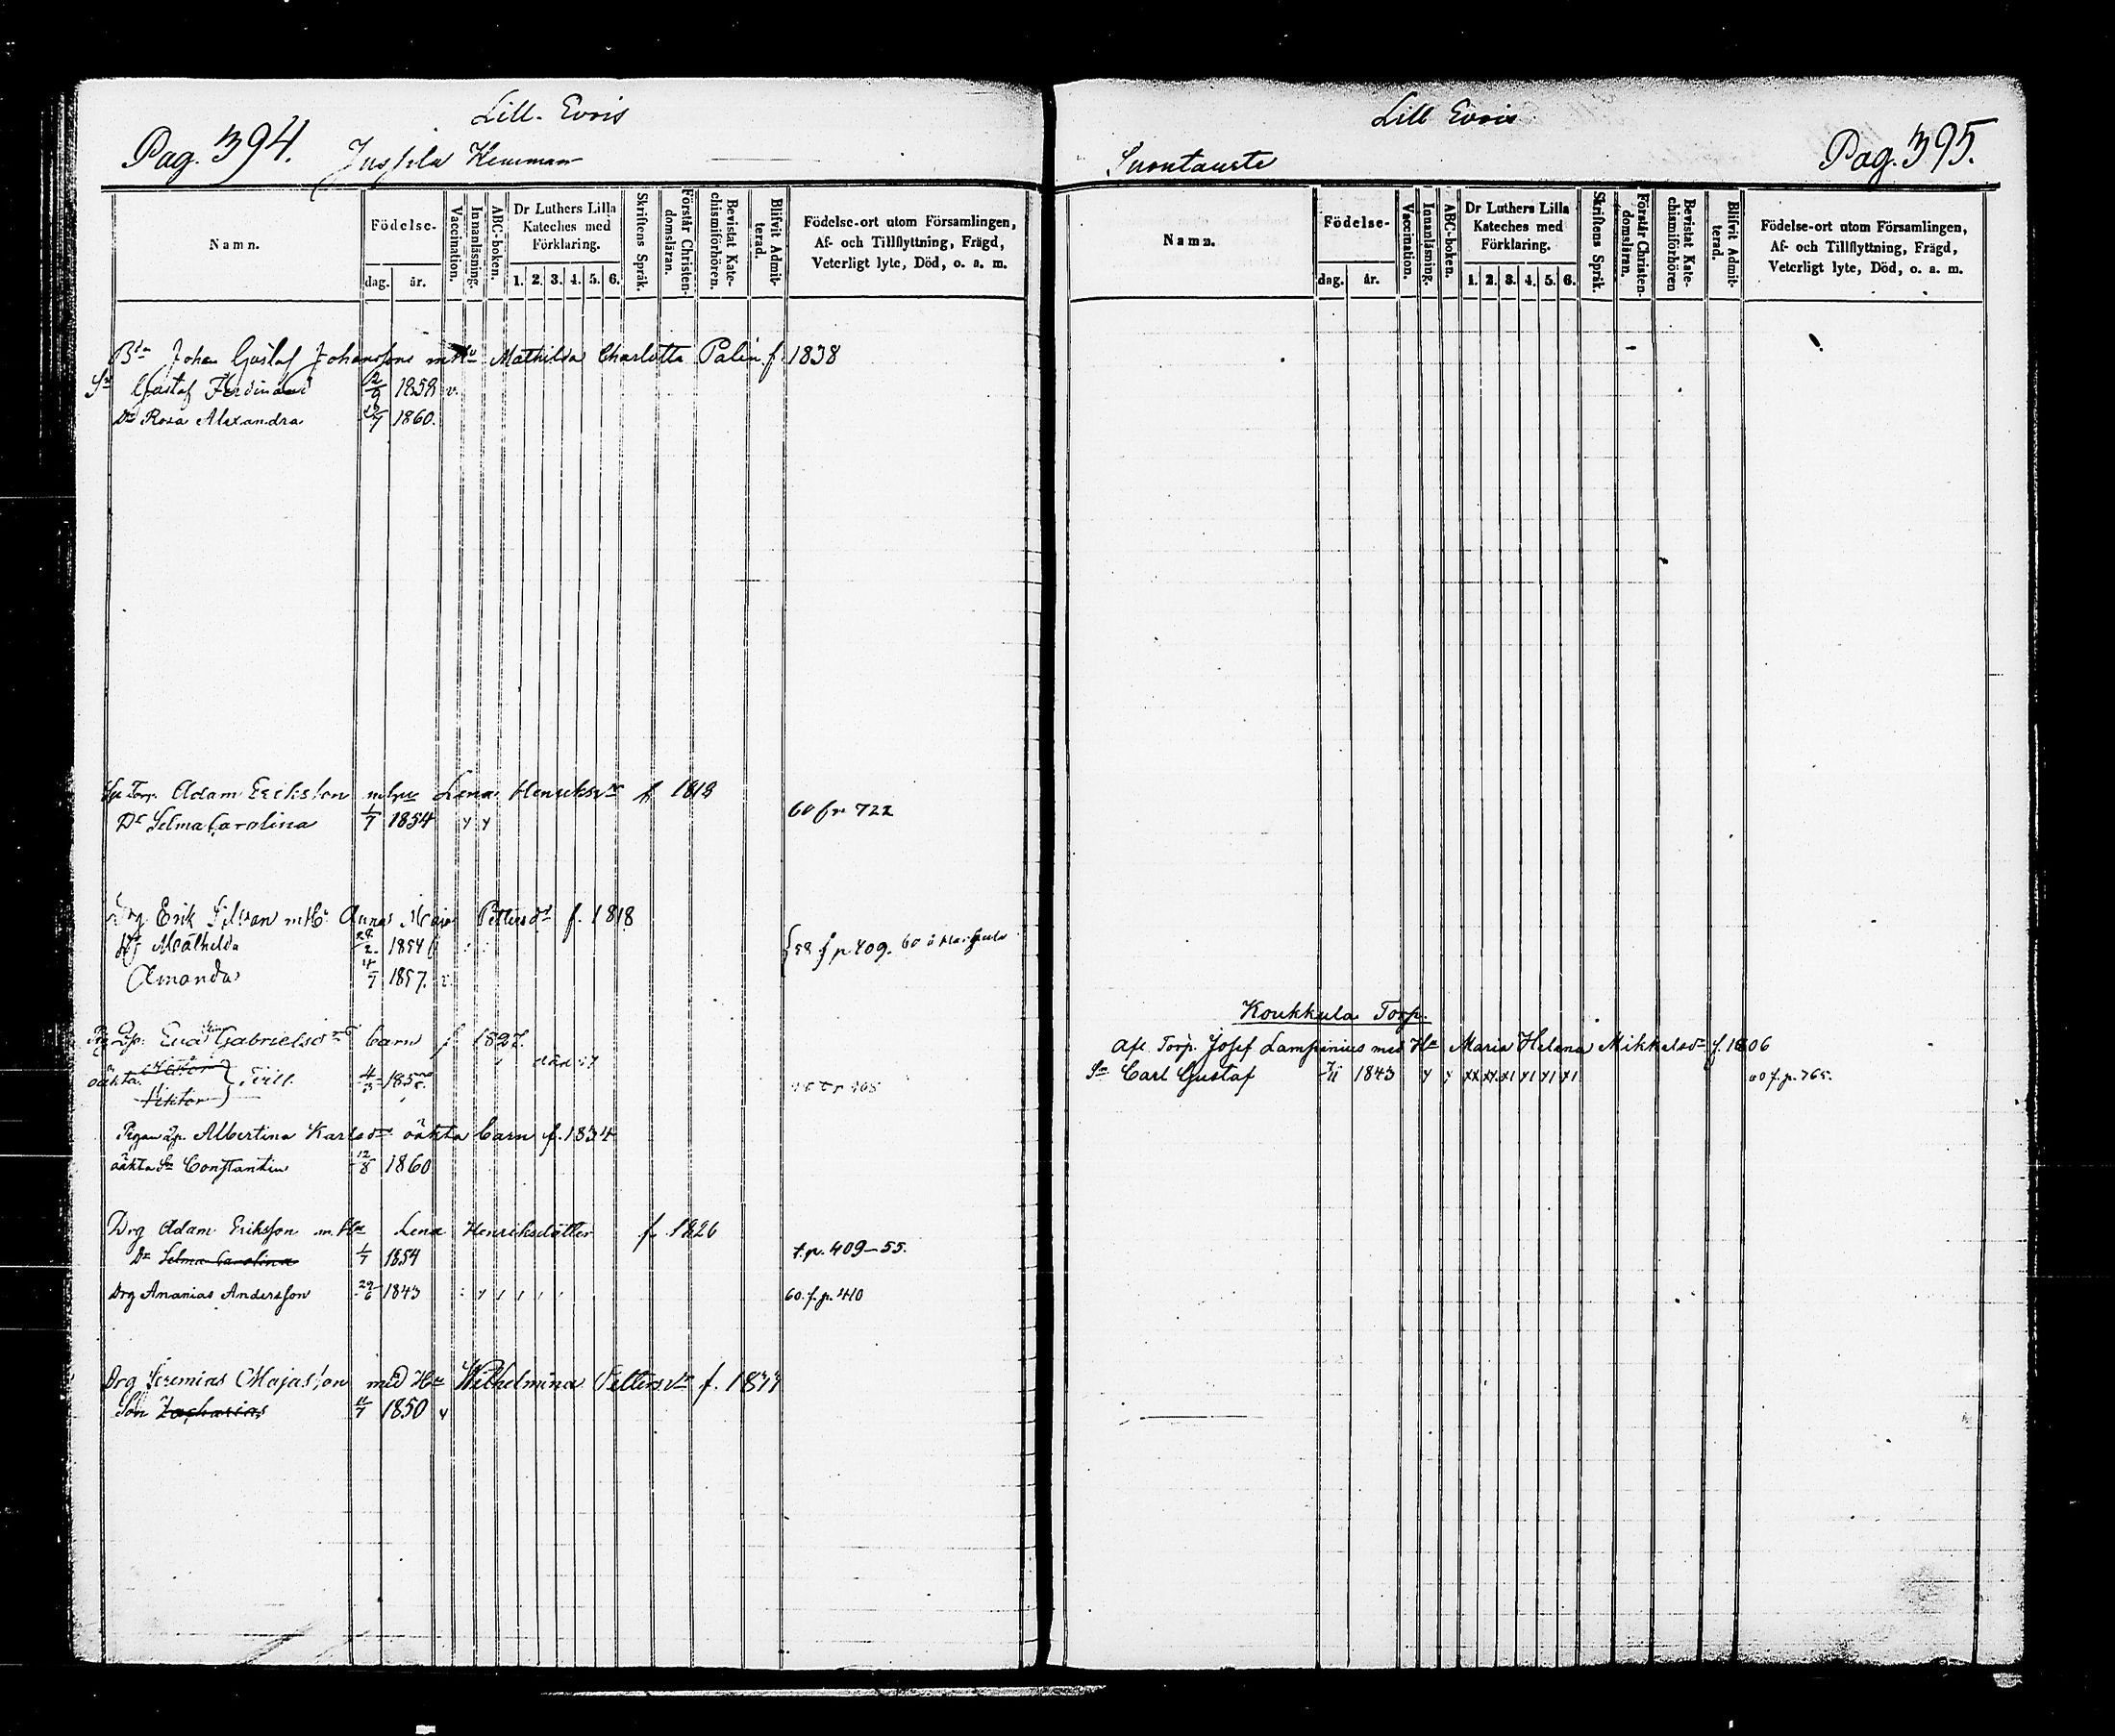 Lill. Evois
Pag. 394. Jussila Hemman
Namn.
Födelse-
dag. år.
Vaccination.
Innanläsning.
ABC-boken.
Dr Luthers Lilla Kateches med Förklaring.
1. 2. 3. 4. 5. 6.
Skriftens Språk.
Förstår Christendomsläran.
Bevistat Katechismiförhören.
Blifvit Admitterad.
Födelse-ort utom Församlingen,
Af- och Tillflyttning, Frägd,
Veterligt lyte, Död, o. a. m.
Bdn Johan Gustaf Johanssons m Hu Mathilda Charlotta Palin f. 1838
Sn Gustaf Ferdinand 2/9 1858 v.
Dr Rosa Alexandra 1860.
Adam Erikson m hu Lena Henriksdr f 1818
Dr Selma Carolina 1/7 1854 60 fr 722
Drg Erik Silvan m Hu Anna Maja Pettersdr f. 1818
Dr Mathilda 1854 58 f p 409. 60
Amanda 4/7 1857. v.
Eva Gabrielsdr barn f 1827.
oäkta Viktor Tvill. 185
Pigan Albertina Karlsdr oäkta barn f. 1834
oäkta Sn Constantin 12/8 1860
Drg Adam Eriksson m. Hu Lena Henriksdotter f. 1826
Dr Selma Carolina 1/7 1854 f. p. 409-55.
Drg Ananias Andersson 29/6 1843 60. f. p. 410
Drg Jeremias Majasson med Hu Wilhelmina Pettersdr f.
Son Zacharias 1850 v
Lill Evois
Suontausta Pag. 395.
Namn.
Födelse-
dag. år.
Vaccination.
Innanläsning.
ABC-boken.
Dr Luthers Lilla Kateches med Förklaring.
1. 2. 3. 4. 5. 6.
Skriftens Språk.
Förstår Christendomsläran.
Bevistat Katechismiförhören
Blifvit Admitterad.
Födelse-ort utom Församlingen,
Af- och Tillflyttning, Frägd,
Veterligt lyte, Död, o. a. m.
Koukkula Torp.
Afl. Torp. Josef Lampinius med Hu Maria Helena Mikkelsdr f. 1806
Sn Carl Gustaf 1843 60 f. p. 765.